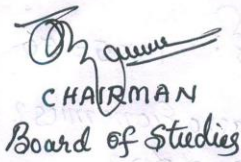 CHAIRMAN
Board of Studies